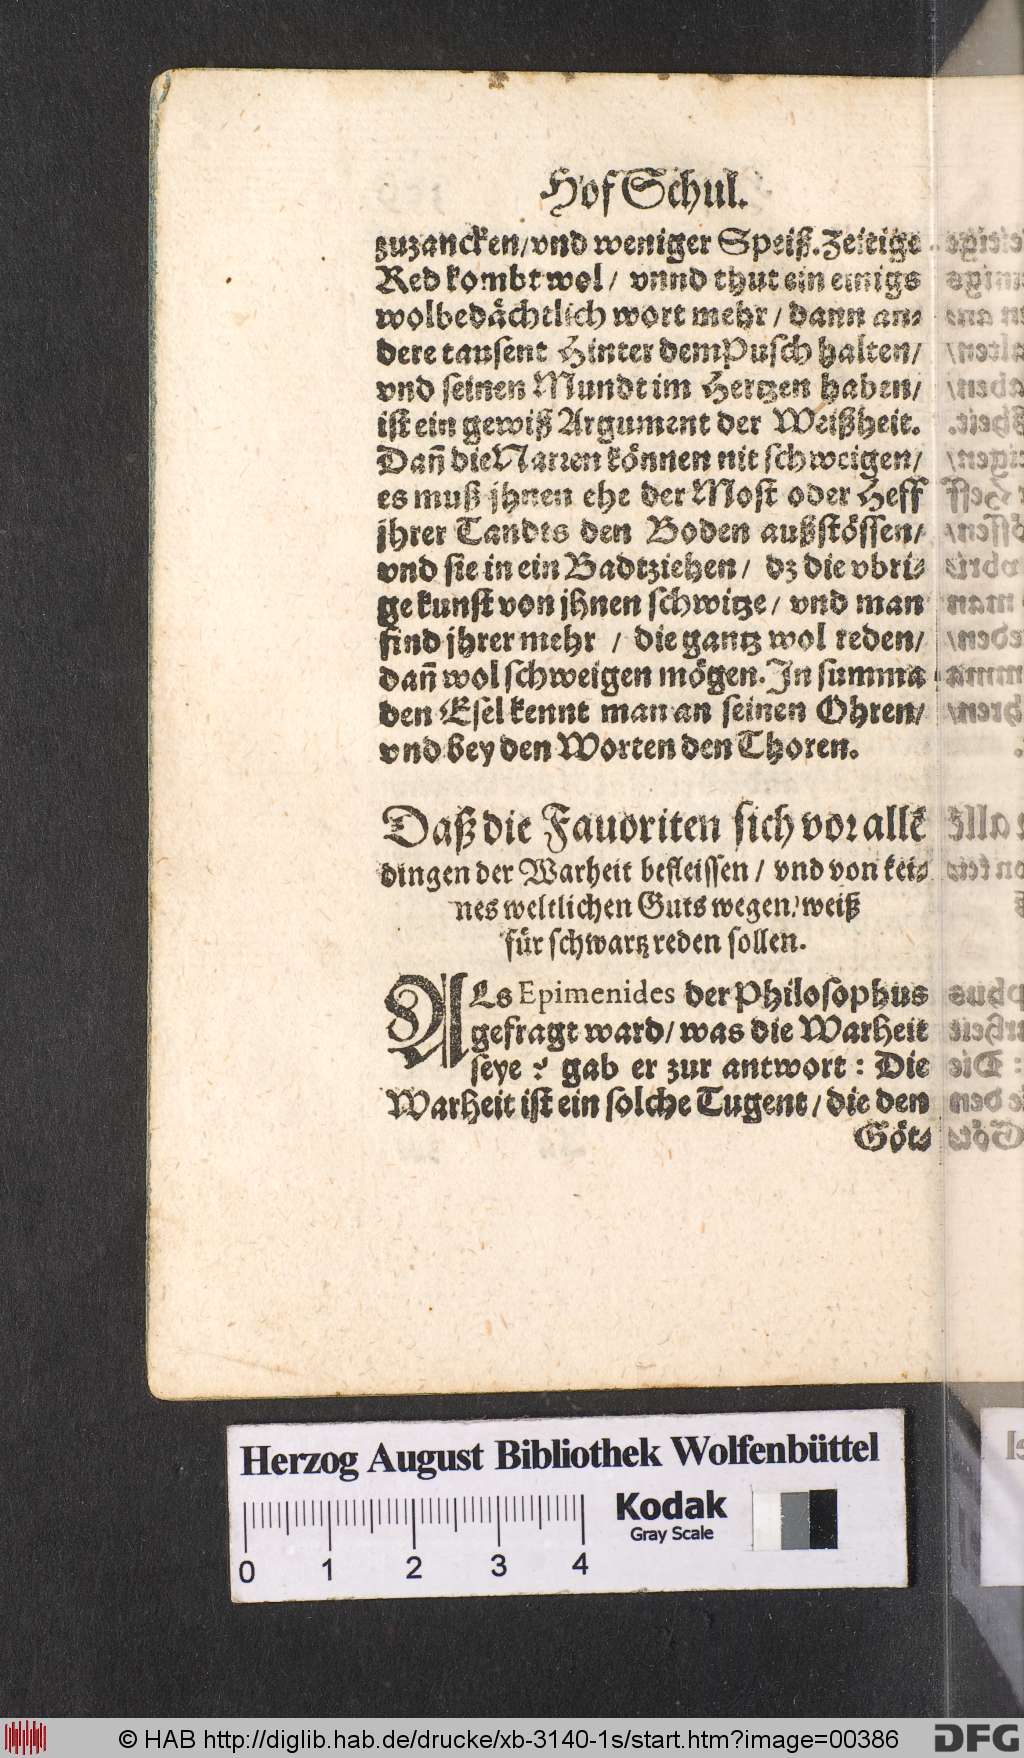 Hof Schul.
zuzancken/vnd weniger Speiß. Zeitige
Red kombt wol/ vnnd thut ein einigs
wolbedächtlich wort mehr/ dann an⸗
dere tausent Hinter dem Pusch halten/
vnd seinen Mundt im Hertzen haben/
ist ein gewiß Argument der Weißheit.
Dañ die Narren können nit schweigen/
es muß jhnen ehe der Most oder Heff
jhrer Tandts den Boden außstössen/
vnd sie in ein Badt ziehen/ dz die vbri⸗
ge kunst von jhnen schwitze/ vnd man
find jhrer mehr / die gantz wol reden/
dañ wol schweigen mögen. In summa
den Esel kennt man an seinen Ohren/
vnd bey den Worten den Thoren.
Daß die Fauoriten sich vor allẽ
dingen der Warheit befleissen/ vnd von kei⸗
nes weltlichen Guts wegen/ weiß
für schwartz reden sollen.
ALs Epimenides der Philosophus
gefragt ward/ was die Warheit
seye? gab er zur antwort: Die
Warheit ist ein solche Tugent/ die den
Göt⸗
Herzog August Bibliothek Wolfenbüttel
Kodak
Gray Scale
0 1 2 3 4
© HAB http://diglib.hab.de/drucke/xb-3140-1s/start.htm?image=00386
DFG